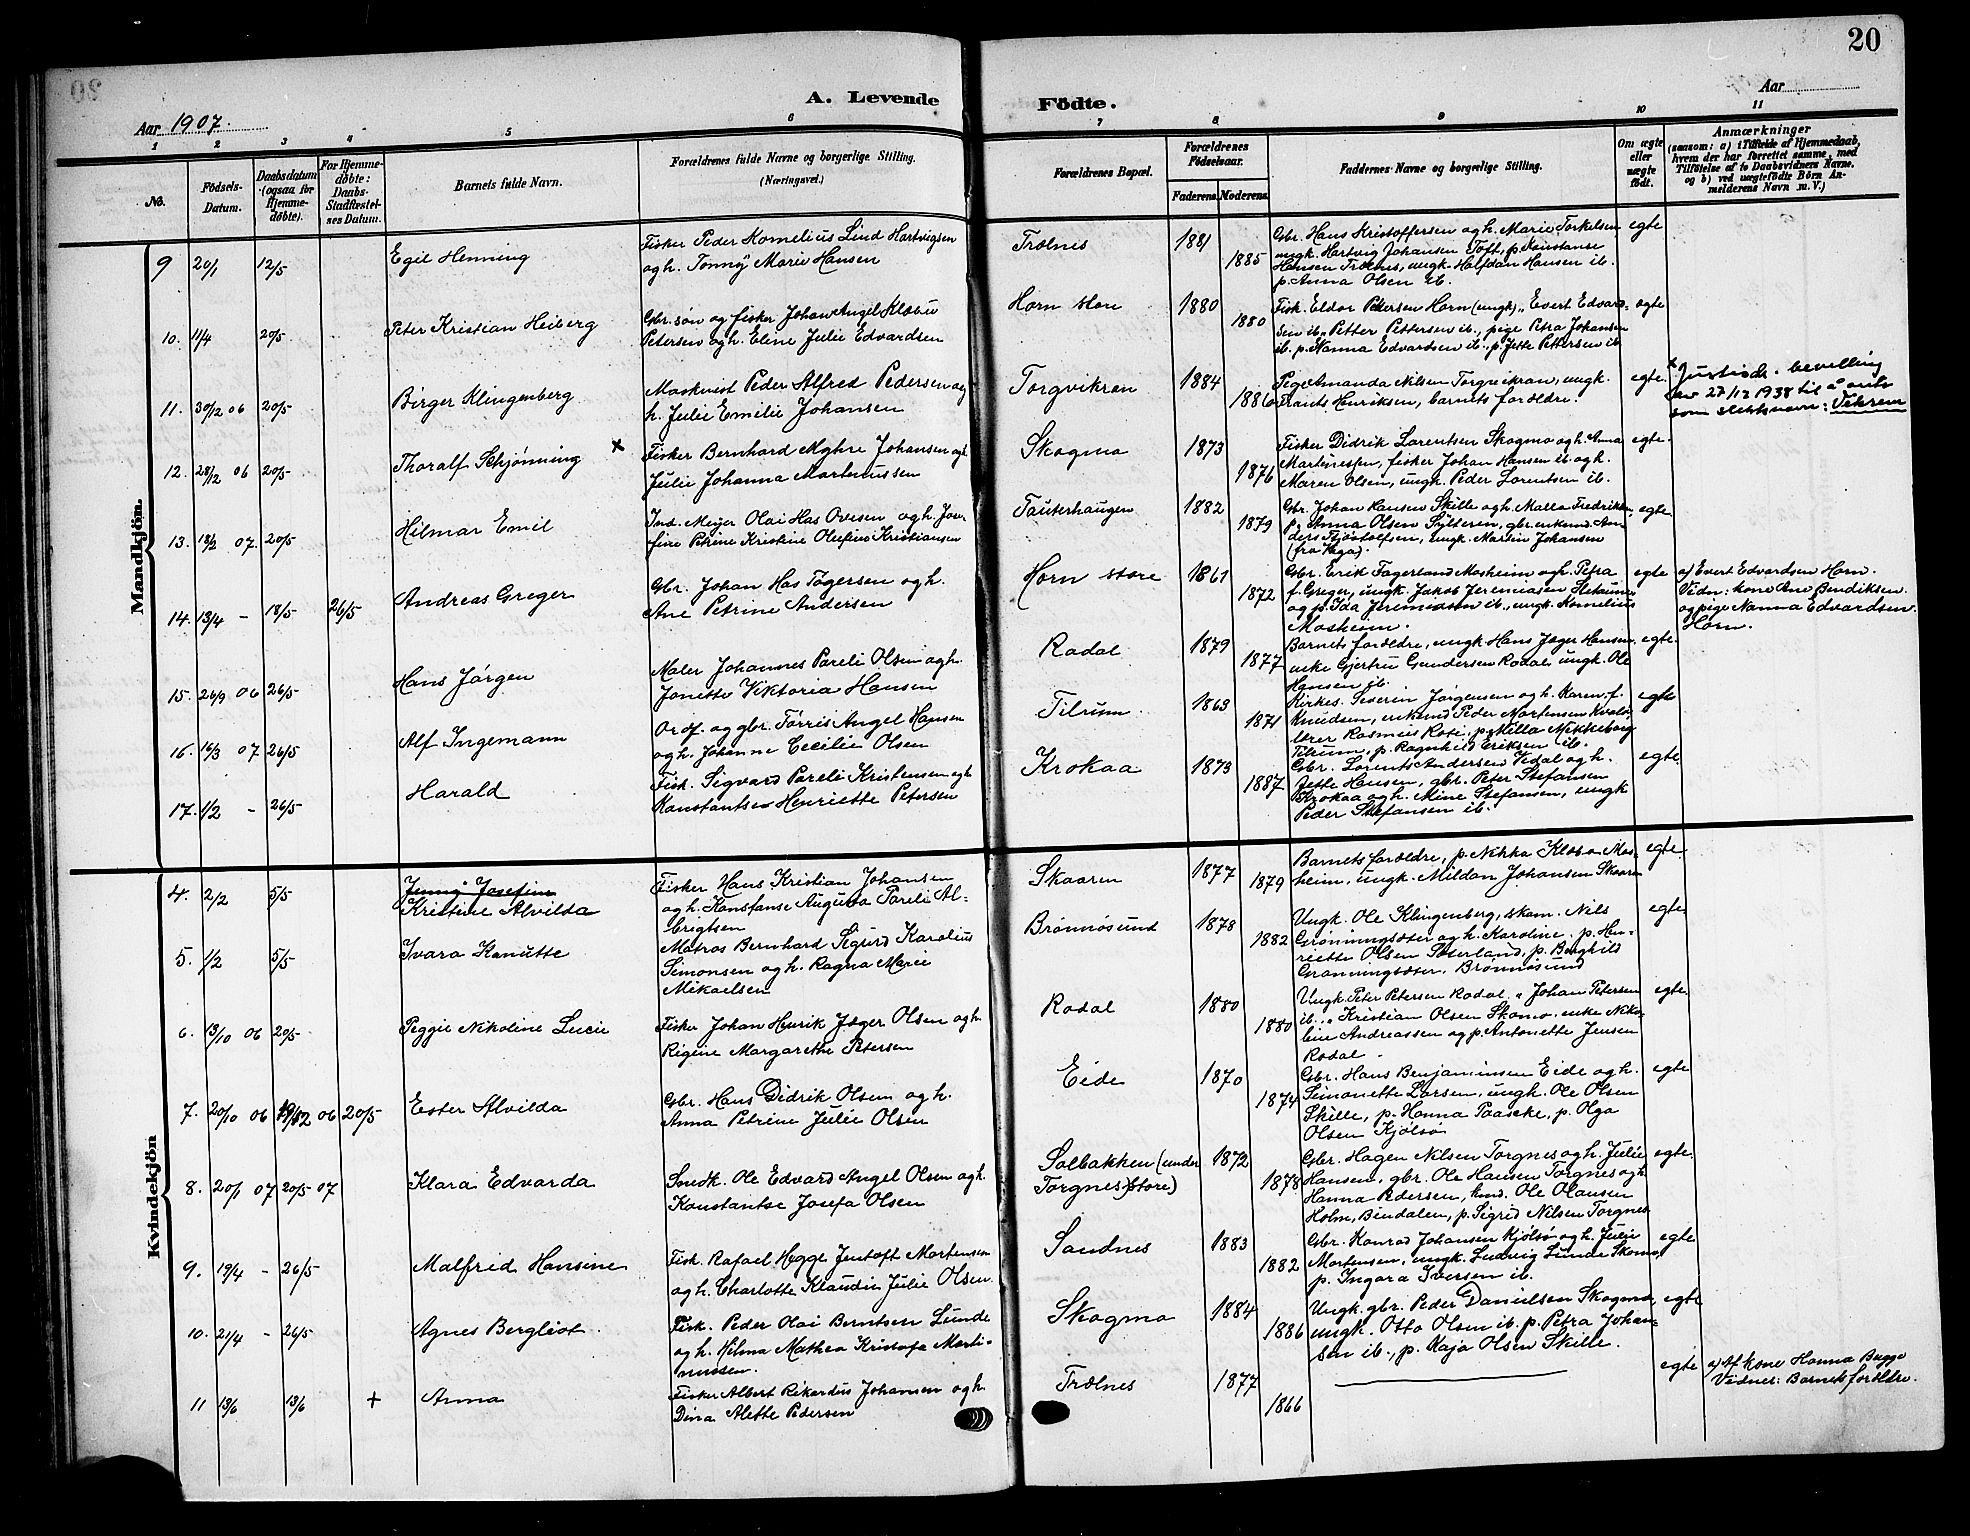 20
A. Levende Födte.
Aar 1907.
Aar
1 2 3 4 5 6 7 8 9 10 11
No.
Födsels-Datum.
Daabsdatum (ogsaa for Hjemmedøbte).
For Hjemmedøbte: Daabs-Stadfæstelses Datum.
Barnets fulde Navn.
Forældrenes fulde Navne og borgerlige Stilling. (Næringsvei.)
Forældrenes Bopæl.
Forældrenes Födselsaar.
Faderens. Moderens.
Faddernes Navne og borgerlige Stilling.
Om ægte eller uægte født.
Anmærkninger
(saasom: a) i Tilfælde af Hjemmedaab, hvem der har forrettet samme, med Tilføielse af to Daabsvidners Navne, og b) ved uægtefødte Börn Anmelderens Navn m. V.)
Mandkjön.
9 20/1 12/5 Egil Henning
Fisker Peder Kornelius Lind Hartvigsen
og h. Tonny Marie Hansen
Trælnes 1881 1885
Gbr. Hans Kristoffersen og h. Marie Torkelsen
ungk. Hartvig Johansen Toft, p. Konstanse
Hansen Trælnes, ungk. Halfdan Hansen ib.
p. Anna Olsen ib.
egte
10. 11/4 20/5 Peter Kristian Heiberg
Gbr. søn og fisker Johan Angel Klæbu
Petersen og h. Eline Julie Edvardsen
Horn store 1880 1880
Fisk. Eldor Pettersen Horn (ungk) „ Evert Edvard-
sen ib. „ Petter Pettersen ib., pige Petra Johansen
ib. p. Nanna Edvardsen ib., p. Jette Pettersen ib
egte
11. 30/2 06 20/5 Birger Klingenberg
Maskinist Peder Alfred Pedersen og
h. Julie Emilie Johansen
Torgvikran 1884 1886
Pige Amanda Nilsen Torgvikran, ungk.
Frants Henriksen, barnets forældre.
egte.
x Justisd. bevilling
av 27/12 1938 til å anta
som slektsnavn: Vikren
12. 28/12 06 20/5 Thoralf Schjønning x
Fisker Bernhard Myhre Johansen og h.
Julie Johanna Martenussen
Skogmo 1873 1876
Fisker Didrik Lorentsen Skogmo og h. Anna
Martinessen, fisker Johan Hansen ib. og h.
Maren Olsen, ungk. Peder Lorentsen ib.
egte.
13. 18/2 07. 20/5 Hilmar Emil
Ind. Meyer Olai Has Ovesen og h. Jose-
fine Petrine Kristine Olufine Kristiansen
Tauterhaugen 1882 1879
Gbr. Johan Hansen Skille og h. Malla Fredriksen,
p. Anna Olsen Sylteren, gbr. enkemd. An-
ders Fjostolfsen, ungk. Martin Johansen
(fra Vega).
egte.
14. 13/4 - 18/5 26/5 Andreas Greger
Gbr. Johan Has Tøgersen og h.
Ane Petrine Andersen
Horn store 1861 1872
Gbr. Erik Fagerland Mosheim og h. Petra
f. Greger, ungk. Jakob Jeremiassen
og p. Ida Jeremiassen ib., ungk. Kornelius
Mosheim.
egte
a) Evert Edvardsen Horn.
Vidn: kone Ane Bendiksen
og pige Nanna Edvardsen
Horn.
15. 26/9 06 26/5 Hans Jörgen
Maler Johannes Pareli Olsen og h.
Jonette Viktoria Hansen
Rodal 1879 1877
Barnets forældre, ungk. Hans Jæger Hansen,
enke Gjertru Gundersen Rodal, ungk. Ole
Hansen ib.
egte.
16. 16/3 07 26/5 Alf Ingemann
Ordf. og gbr. Tørris Angel Hansen
og h. Johanne Cecilie Olsen
Tilrum 1863 1871
Kirkes. Severin Jørgensen og h. Karen f.
Knudsen, enkemd Peder Mortensen Kvalø,
lærer Rasmus Rote, p. Milla Mikkelborg
Tilrum, p. Ragnhild Eriksen ib.
egte
17. 1/2 - 26/5 Harald
Fisk. Sigvard Pareli Kristensen og h
Konstantse Henriette Petersen
Krokaa 1873 1887
Gbr. Lorents Andersen Vedal og h.
Jette Hansen, gbr. Peter Stefansen
Krokaa og h. Mine Stefansen, ungk
Peder Stefansen ib.
egte.
Kvindekjön
4. 2/2 5/5 Jenny Josefine
Kristine Alvilda
Fisker Hans Kristian Johansen
og h. Konstanse Augusta Pareli Al-
bregtsen
Skaaren 1877 1879
Barnets forældre, p. Nikka Klæbo Mos-
heim, ungk. Mildan Johansen Skaaren
egte.
5. 1/2 5/5 Ivara Kanutte
Matros Bernhard Sigurd Karolius
Simonsen og h. Ragna Marie
Mikaelsen
Brønnøsund 1878 1882
Ungk. Ole Klingenberg, skom. Nils
Grönningsæter og h. Karoline. p. Hen-
riette Olsen Sæterland, p. Borghild
Grønningsæter, Brønnøsund
egte.
6. 13/10 06 20/5 Peggie Nikoline Lucie
Fisker Johan Henrik Jæger Olsen og h.
Regine Margarethe Petersen
Rodal 1880 1880
Ungk. Peter Petersen Rodal. „ Johan Petersen
ib. „ Kristian Olsen Skomo, enke Niko-
line Andreassen og p. Antonette Jensen
Rodal.
egte.
7. 20/10 06 19/12 06 20/5 Ester Alvilda
Gbr. Hans Didrik Olsen og h.
Anna Petrine Julie Olsen
Eide 1870 1874
Gbr. Hans Benjaminsen Eide og h.
Simonette Larsen, ungk. Ole Olsen
Skille, p. Hanna Paaske, p. Olga
Olsen Kjölsö
egte
8. 20/1 07 20/5 07 Klara Edvarda
Snedk. Ole Edvard Angel Olsen og h.
Konstantse Josefa Olsen
Solbakken (under
Torgnes store) 1872 1878
Gbr. Hagen Nilsen Torgnes og h. Julie
Hansen, gbr. Ole Hansen Torgnes og h.
Hanna Pedersen, kmd. Ole Olausen
Holm, Bindalen, p. Sigrid Nilsen Torgnes
egte.
9. 19/4 - 26/5 Malfrid Hansine
Fisk. Rafael Hegge Jentoft Mortensen
og h. Charlotte Klaudin Julie Olsen
Sandnes 1883 1882
Gbr. Konrad Johansen Kjölsö og h. Julie
Mortensen, ungk. Ludvig Lunde Skomo,
p. Ingara Iversen ib.
egte
10. 21/4 - 26/5 Agnes Bergliot.
Fisk. Peder Olai Berntsen Lunde
og h. Hilma Mathea Kristofa Marti-
nussen.
Skogmo 1884 1886
Ungk. gbr. Peder Danielsen Skogmo,
ungk. Otto Olsen ib. p. Petra Johan-
sen ib., p. Kaja Olsen Skille.
egte
11 13/6 13/6 + Anna
Fisker Albert Rikardus Johansen og h.
Dina Alette Pedersen
Trælnes 1877 1866
egte
a) Af kone Hanna Bugge
Vidner: Barnets forældre.